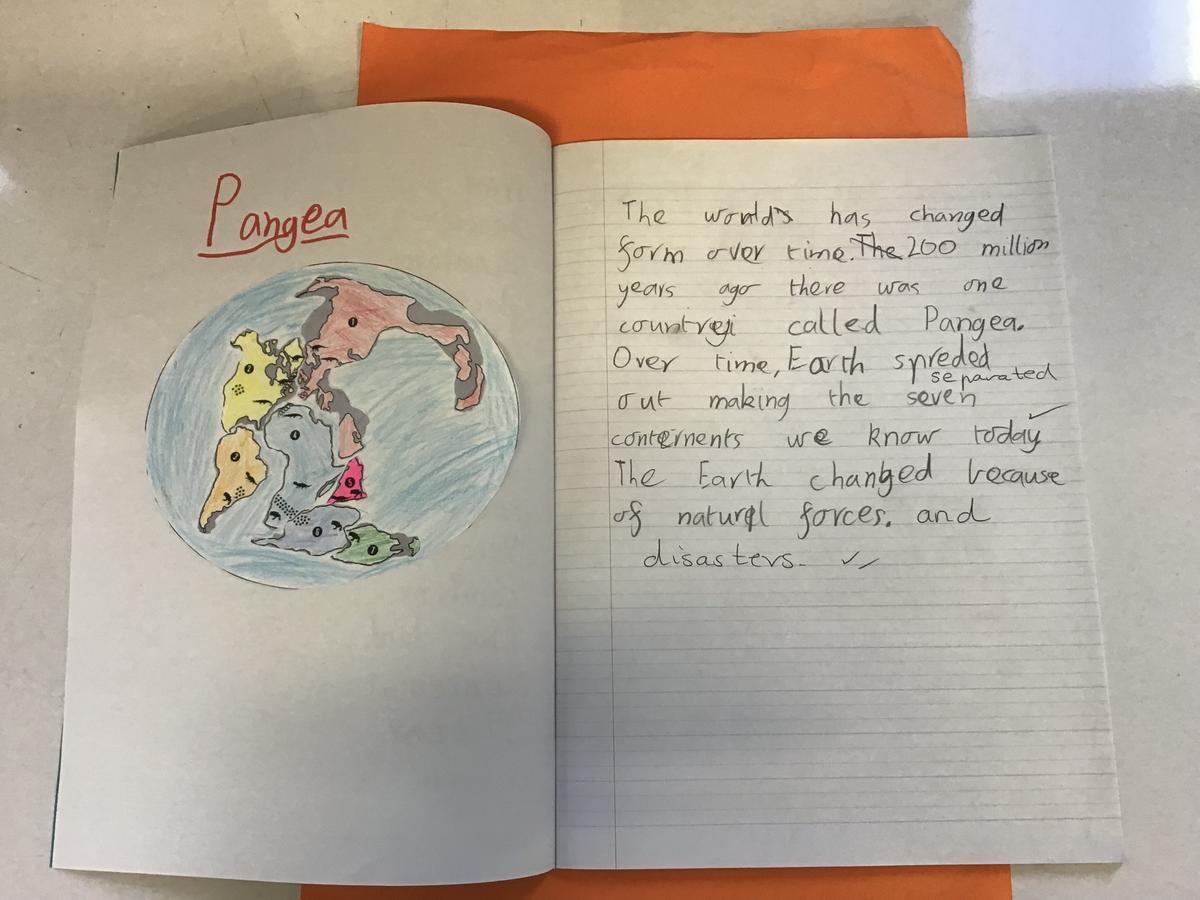 Pangea
1
2
3
4
5
6
7
The world's has changed
form over time. The 200 million
years ago there was one
country called Pangea.
Over time, Earth spreded
separated
out making the seven
conternents we know today
The Earth changed because
of natural forces. and
disasters.